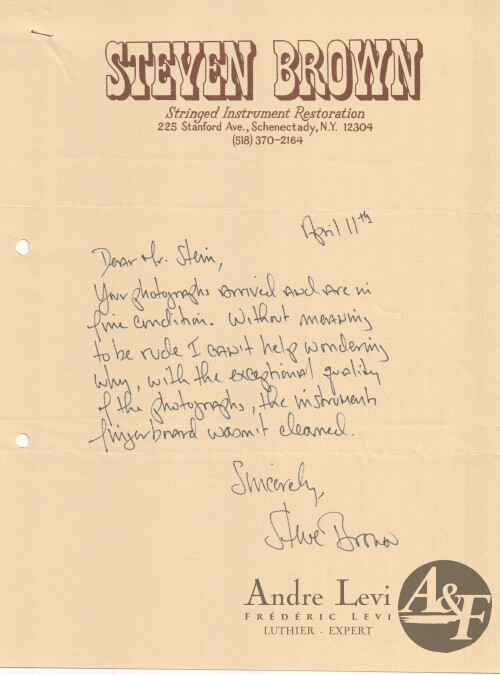 STEVEN BROWN
Stringed Instrument Restoration
225 Stanford Ave., Schenectady, N.Y. 12304
(518) 370-2164
April 11th
Dear Mr. Stein,
Your photographs arrived and are in
fine condition. Without meaning
to be rude I can't help wondering
why, with the exceptional quality
of the photographs, the instruments
fingerboard wasn't cleaned.
Sincerely,
Steve Brown
Andre Levi
FRÉDÉRIC LEVI
LUTHIER - EXPERT
A&F